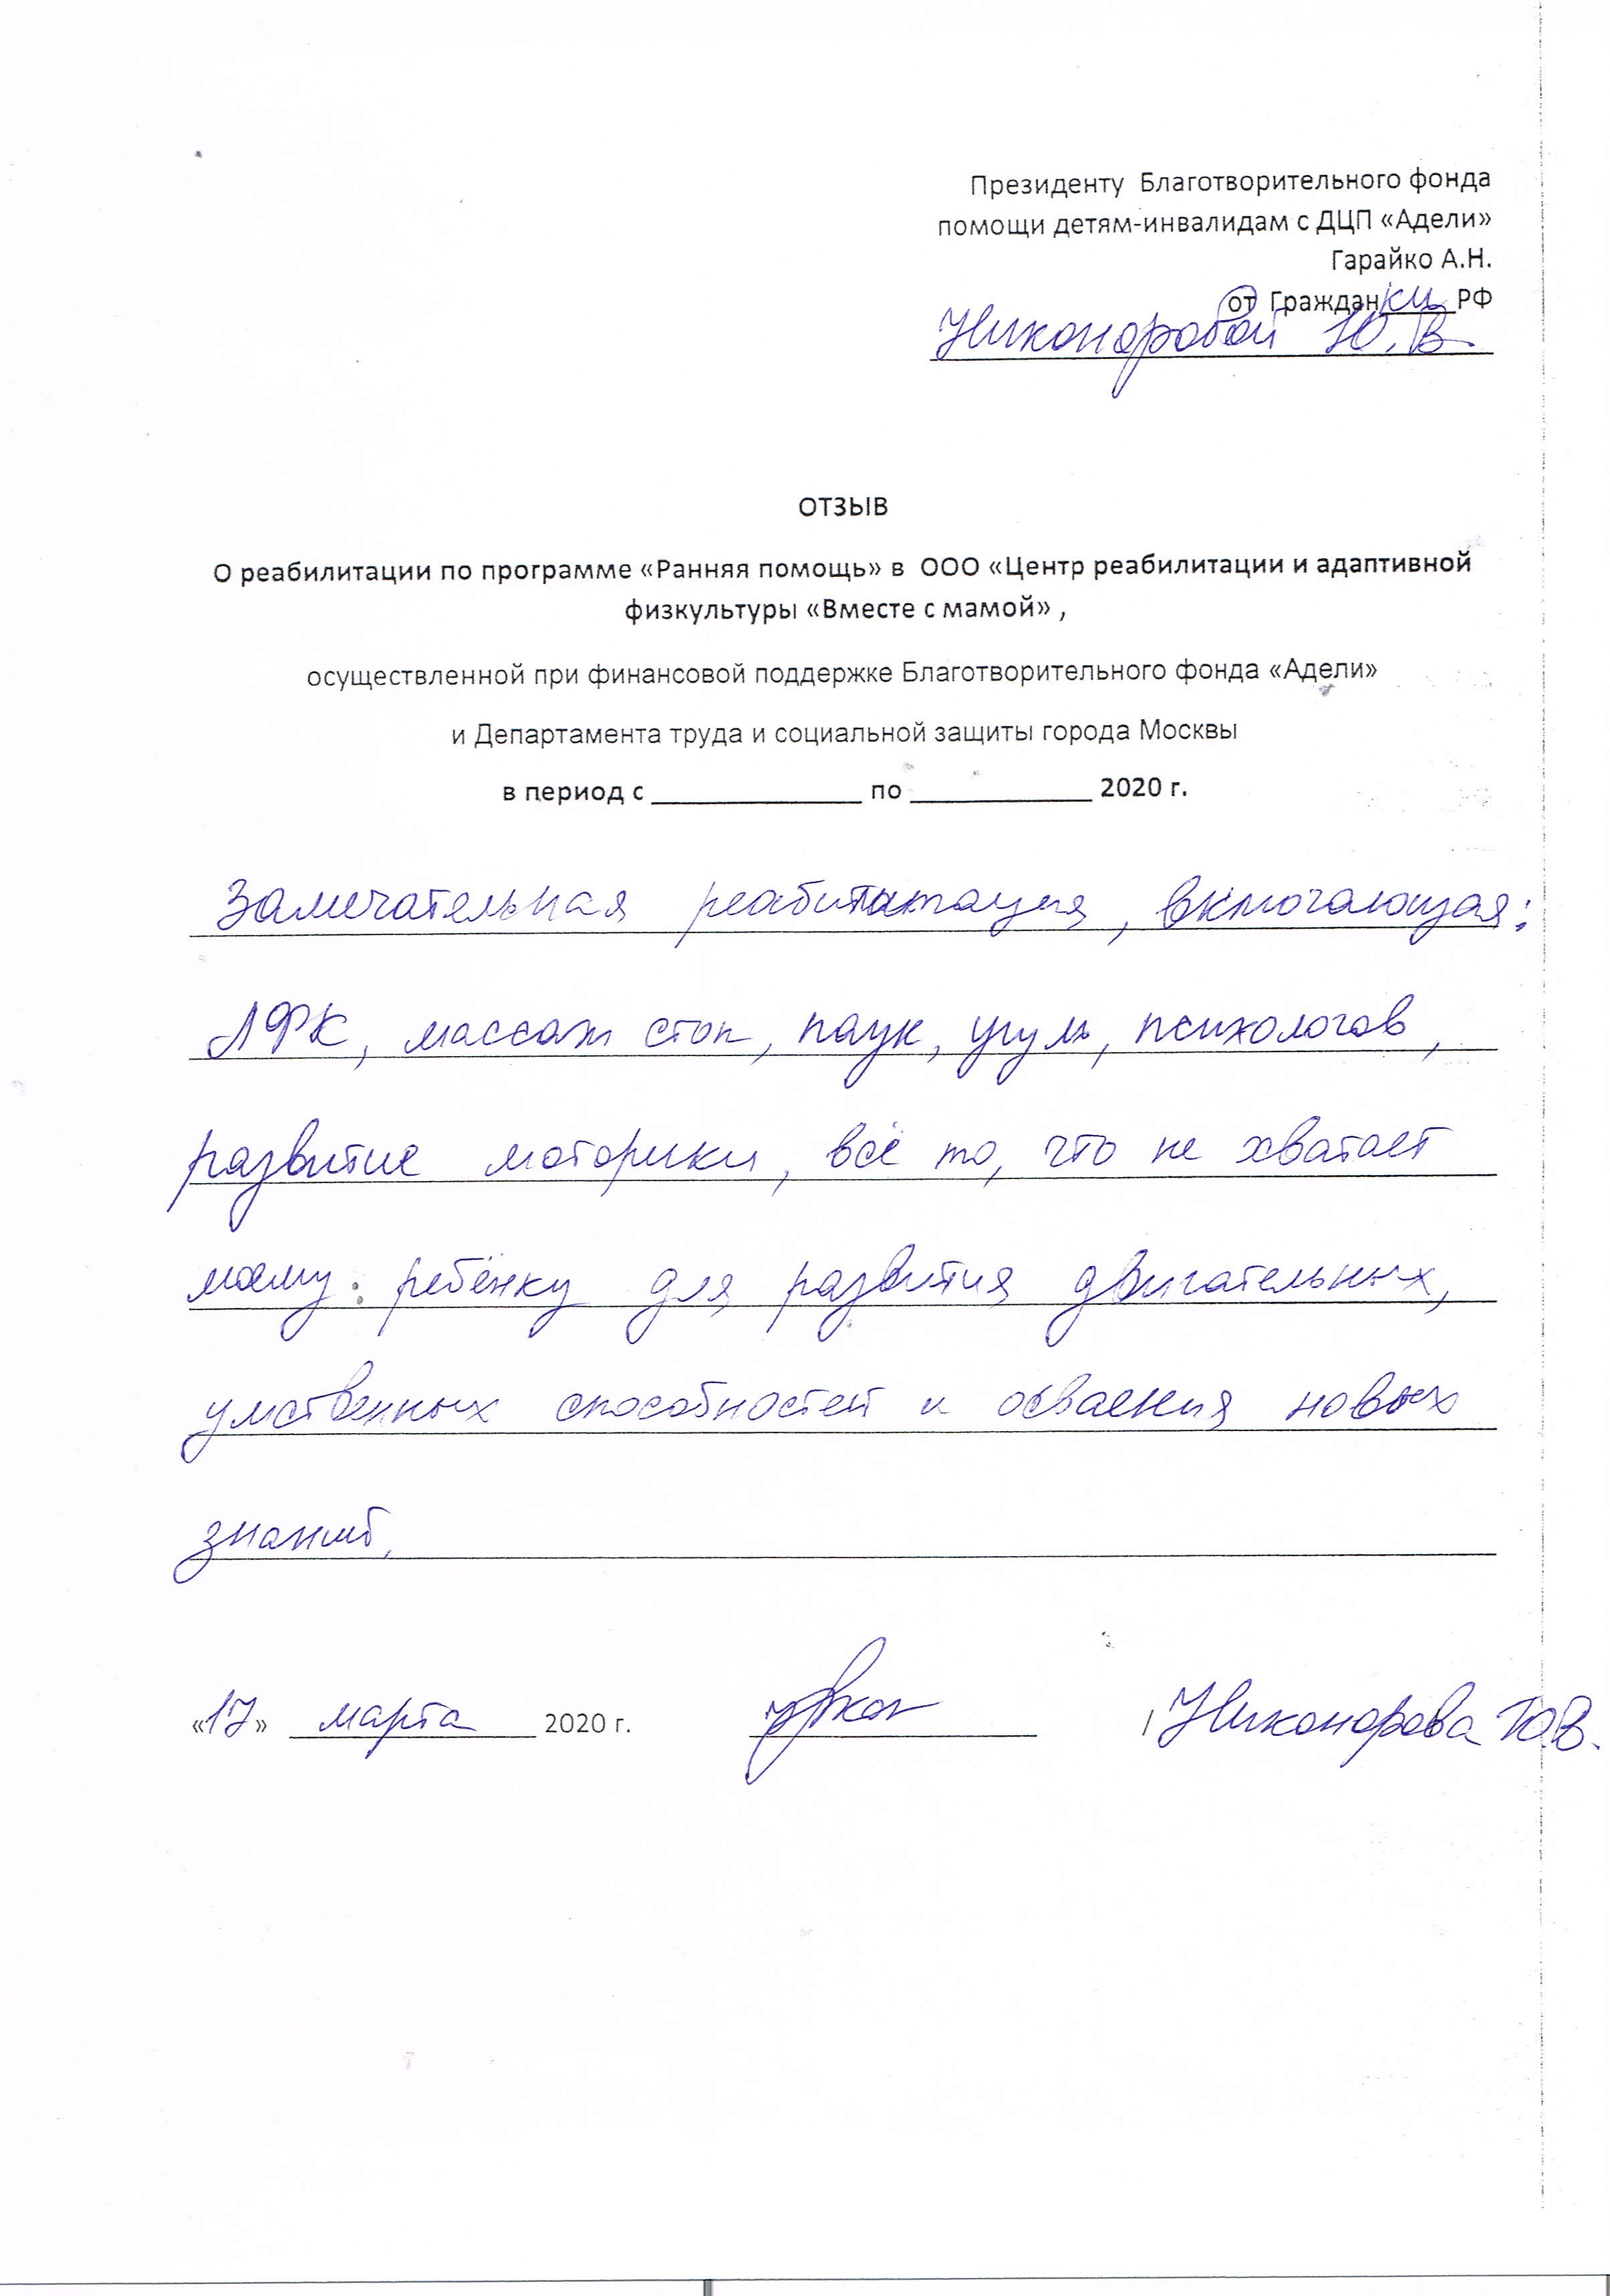 Президенту Благотворительного фонда
помощи детям-инвалидам с ДЦП «Адели»
Гарайко А.Н.
от Гражданки РФ
Никоноровой Ю.В.
ОТЗЫВ
О реабилитации по программе «Ранняя помощь» в ООО «Центр реабилитации и адаптивной
физкультуры «Вместе с мамой» ,
осуществленной при финансовой поддержке Благотворительного фонда «Адели»
и Департамента труда и социальной защиты города Москвы
в период с ______________ по ____________ 2020 г.
Замечательная реабилитация, включающая:
ЛФК, массаж стоп, паук, угуль, психологов,
развитие моторики, всё то, что не хватает
моему ребёнку для развития двигательных,
умственных способностей и освоения новых
знаний.
«17» марта 2020 г. / Никонорова Ю.В.